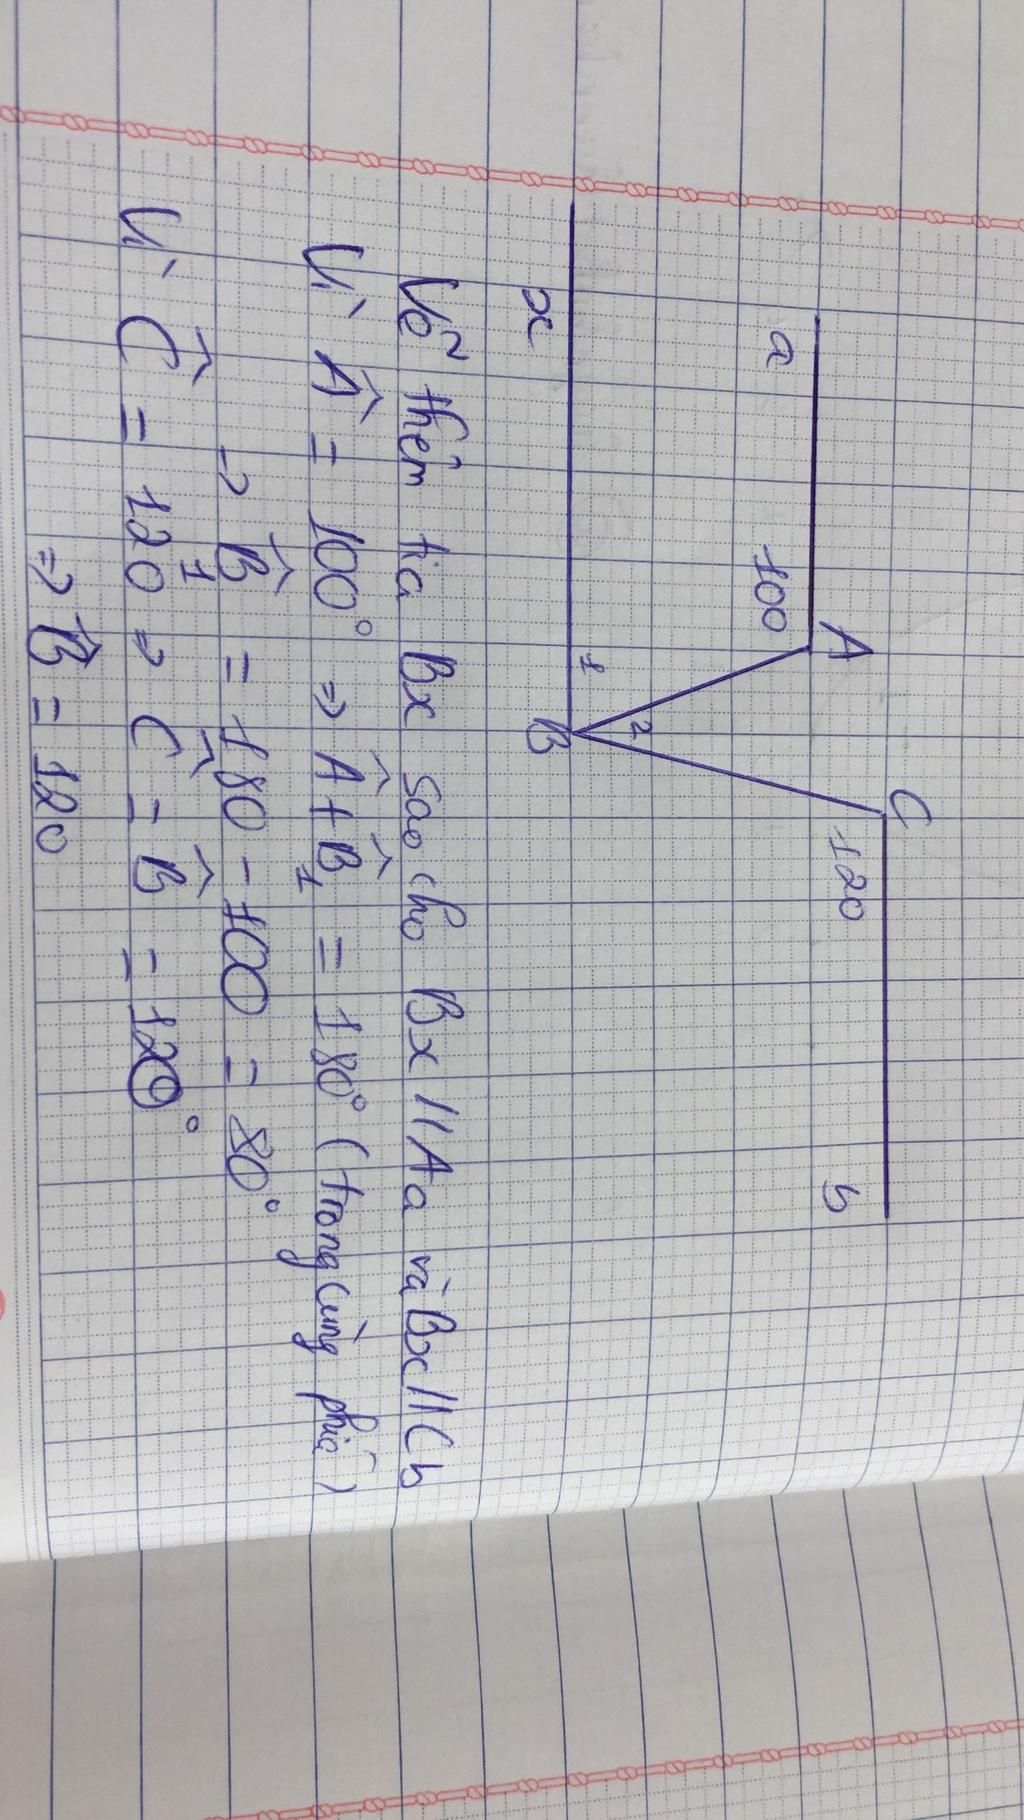 a
A
100
C
120
b
1
2
x
B
Vẽ thêm tia Bx sao cho Bx // Aa và Bx // Cb
Vì Â = 100° => Â + B̂₁ = 180° (trong cùng phía)
=> B̂₁ = 180 - 100 = 80°
Vì Ĉ = 120 => Ĉ = B̂ = 120°
=> B̂ = 120